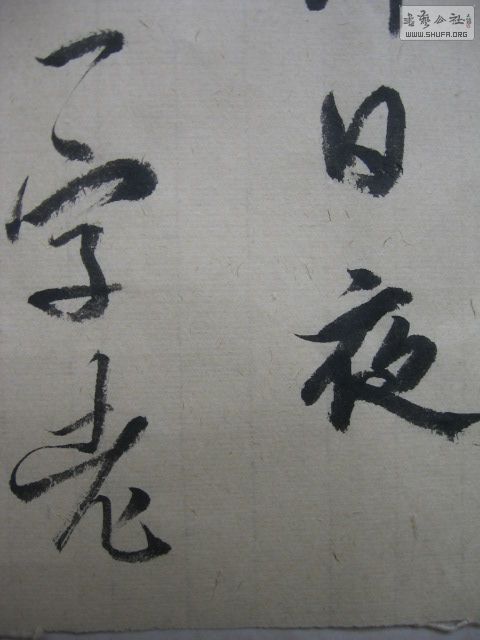 日夜
一字老
書藝公社
WWW.SHUFA.ORG